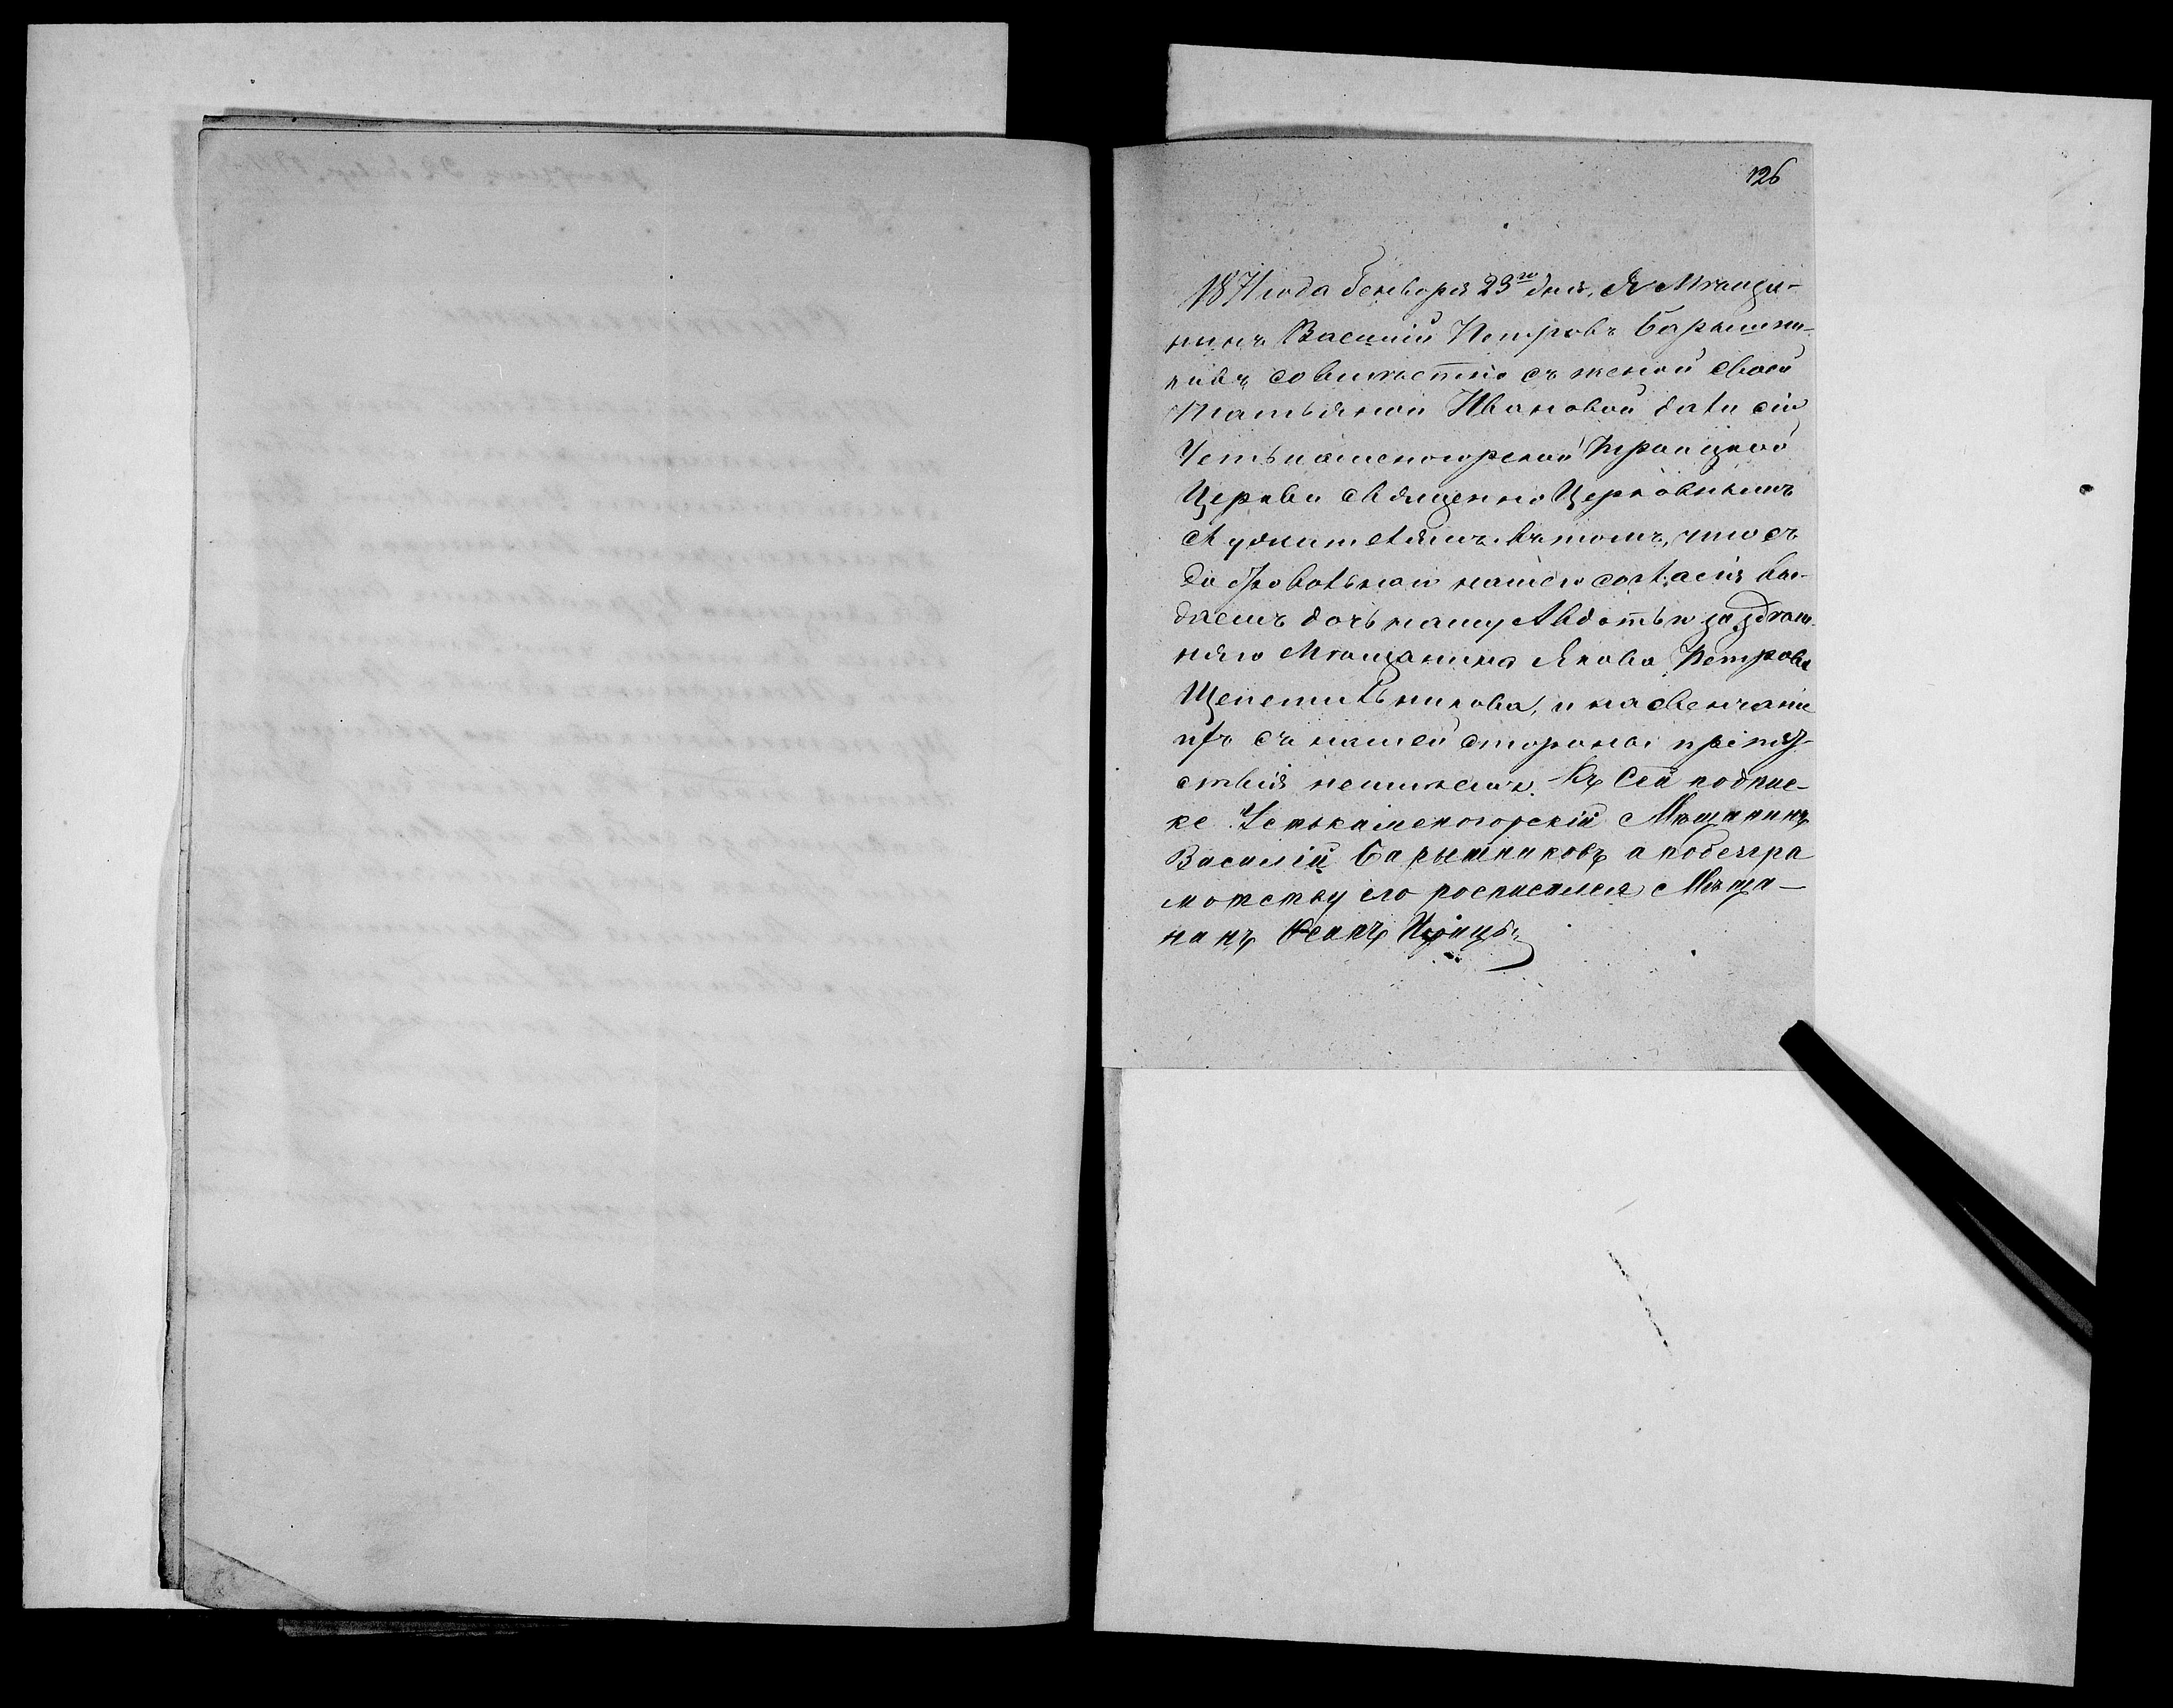 126
1871 года Генваря 23го дня, Я Мѣщани-
нинъ Василій Петровъ Барышни-
ковъ совмѣстно съ женой своей
Татьяной Ивановой дали сію
Устькаменогорской Троицкой
Церкви Священно Церковнымъ
Служителямъ въ томъ, что съ
добровольнаго нашего согласія вы-
даемъ дочь нашу Авдотью за здѣш-
няго Мѣщанина Якова Петрова
Щепетильникова, и на свенчаніе
ихъ съ нашей стороны препят-
ствія неимеемъ. Къ сей подпис-
ке Устькаменогорскій Мѣщанинъ
Василій Барышниковъ а побезгра
мотству его росписался Мѣща-
нинъ